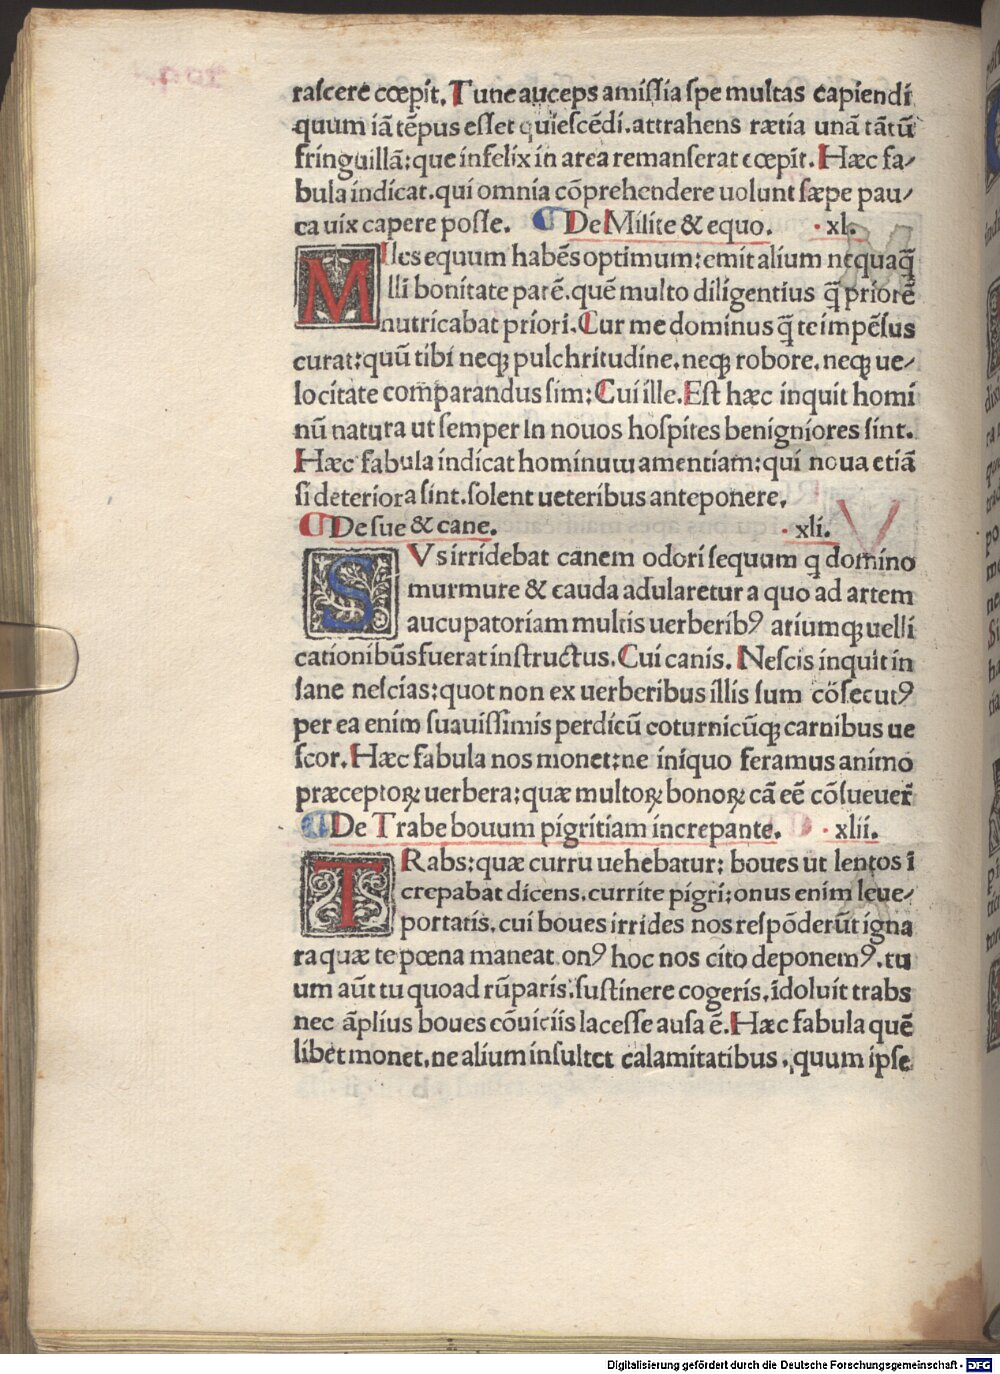 raſcere cœpit. Tunc auceps amiſſia ſpe multas capiendi
quum iā tēpus eſſet quieſcēdi. attrahens rætia unā tātū
fringuillā: que infelix in area remanſerat cœpit. Hæc fa⸗
bula indicat. qui omnia cōprehendere uolunt ſæpe pau⸗
ca uix capere poſſe. ¶ De Milite & equo. · xl.
MIles equum habēs optimum: emit alium nequaq̄
illi bonitate parē. quē multo diligentius q̄ priorē
nutricabat priori. Cur me dominus q̄ te impēſus
curat: quū tibi neqꝫ pulchritudine. neqꝫ robore. neqꝫ ue⸗
locitate comparandus ſim: Cui ille. Eſt hæc inquit homi
nū natura ut ſemper In nouos hoſpites benigniores ſint.
Hæc fabula indicat hominum amentiam: qui noua etiā
ſi deteriora ſint. ſolent ueteribus anteponere.
¶ De ſue & cane. · xli.
SVs irridebat canem odoriſequum q domino
murmure & cauda adularetur a quo ad artem
aucupatoriam multis uerberibꝰ atiumqꝫ uelli
cationibūs fuerat inſtructus. Cui canis. Neſcis inquit in
ſane neſcias: quot non ex uerberibus illis ſum cōſecutꝰ
per ea enim ſuauiſſimis perdicū coturnicūqꝫ carnibus ue
ſcor. Hæc fabula nos monet: ne iniquo feramus animo
præceptoꝝ uerbera: quæ multoꝝ bonoꝝ cā eē cōſueuer̄
¶ De Trabe bouum pigritiam increpante. · xlii.
TRabs: quæ curru uehebatur: boues ut lentos ī
crepabat dicens. currite pigri: onus enim leue⸗
portatis. cui boues irrides nos reſpōderūt igna
ra quæ te pœna maneat onꝰ hoc nos cito deponemꝰ. tu
um aūt tu quoad rūparis. ſuſtinere cogeris. īdoluit trabs
nec āplius boues cōuiciis laceſſe auſa ē. Hæc fabula quē
libet monet. ne alium inſultet calamitatibus. quum ipſe
V
Digitalisierung gefördert durch die Deutsche Forschungsgemeinschaft - DFG